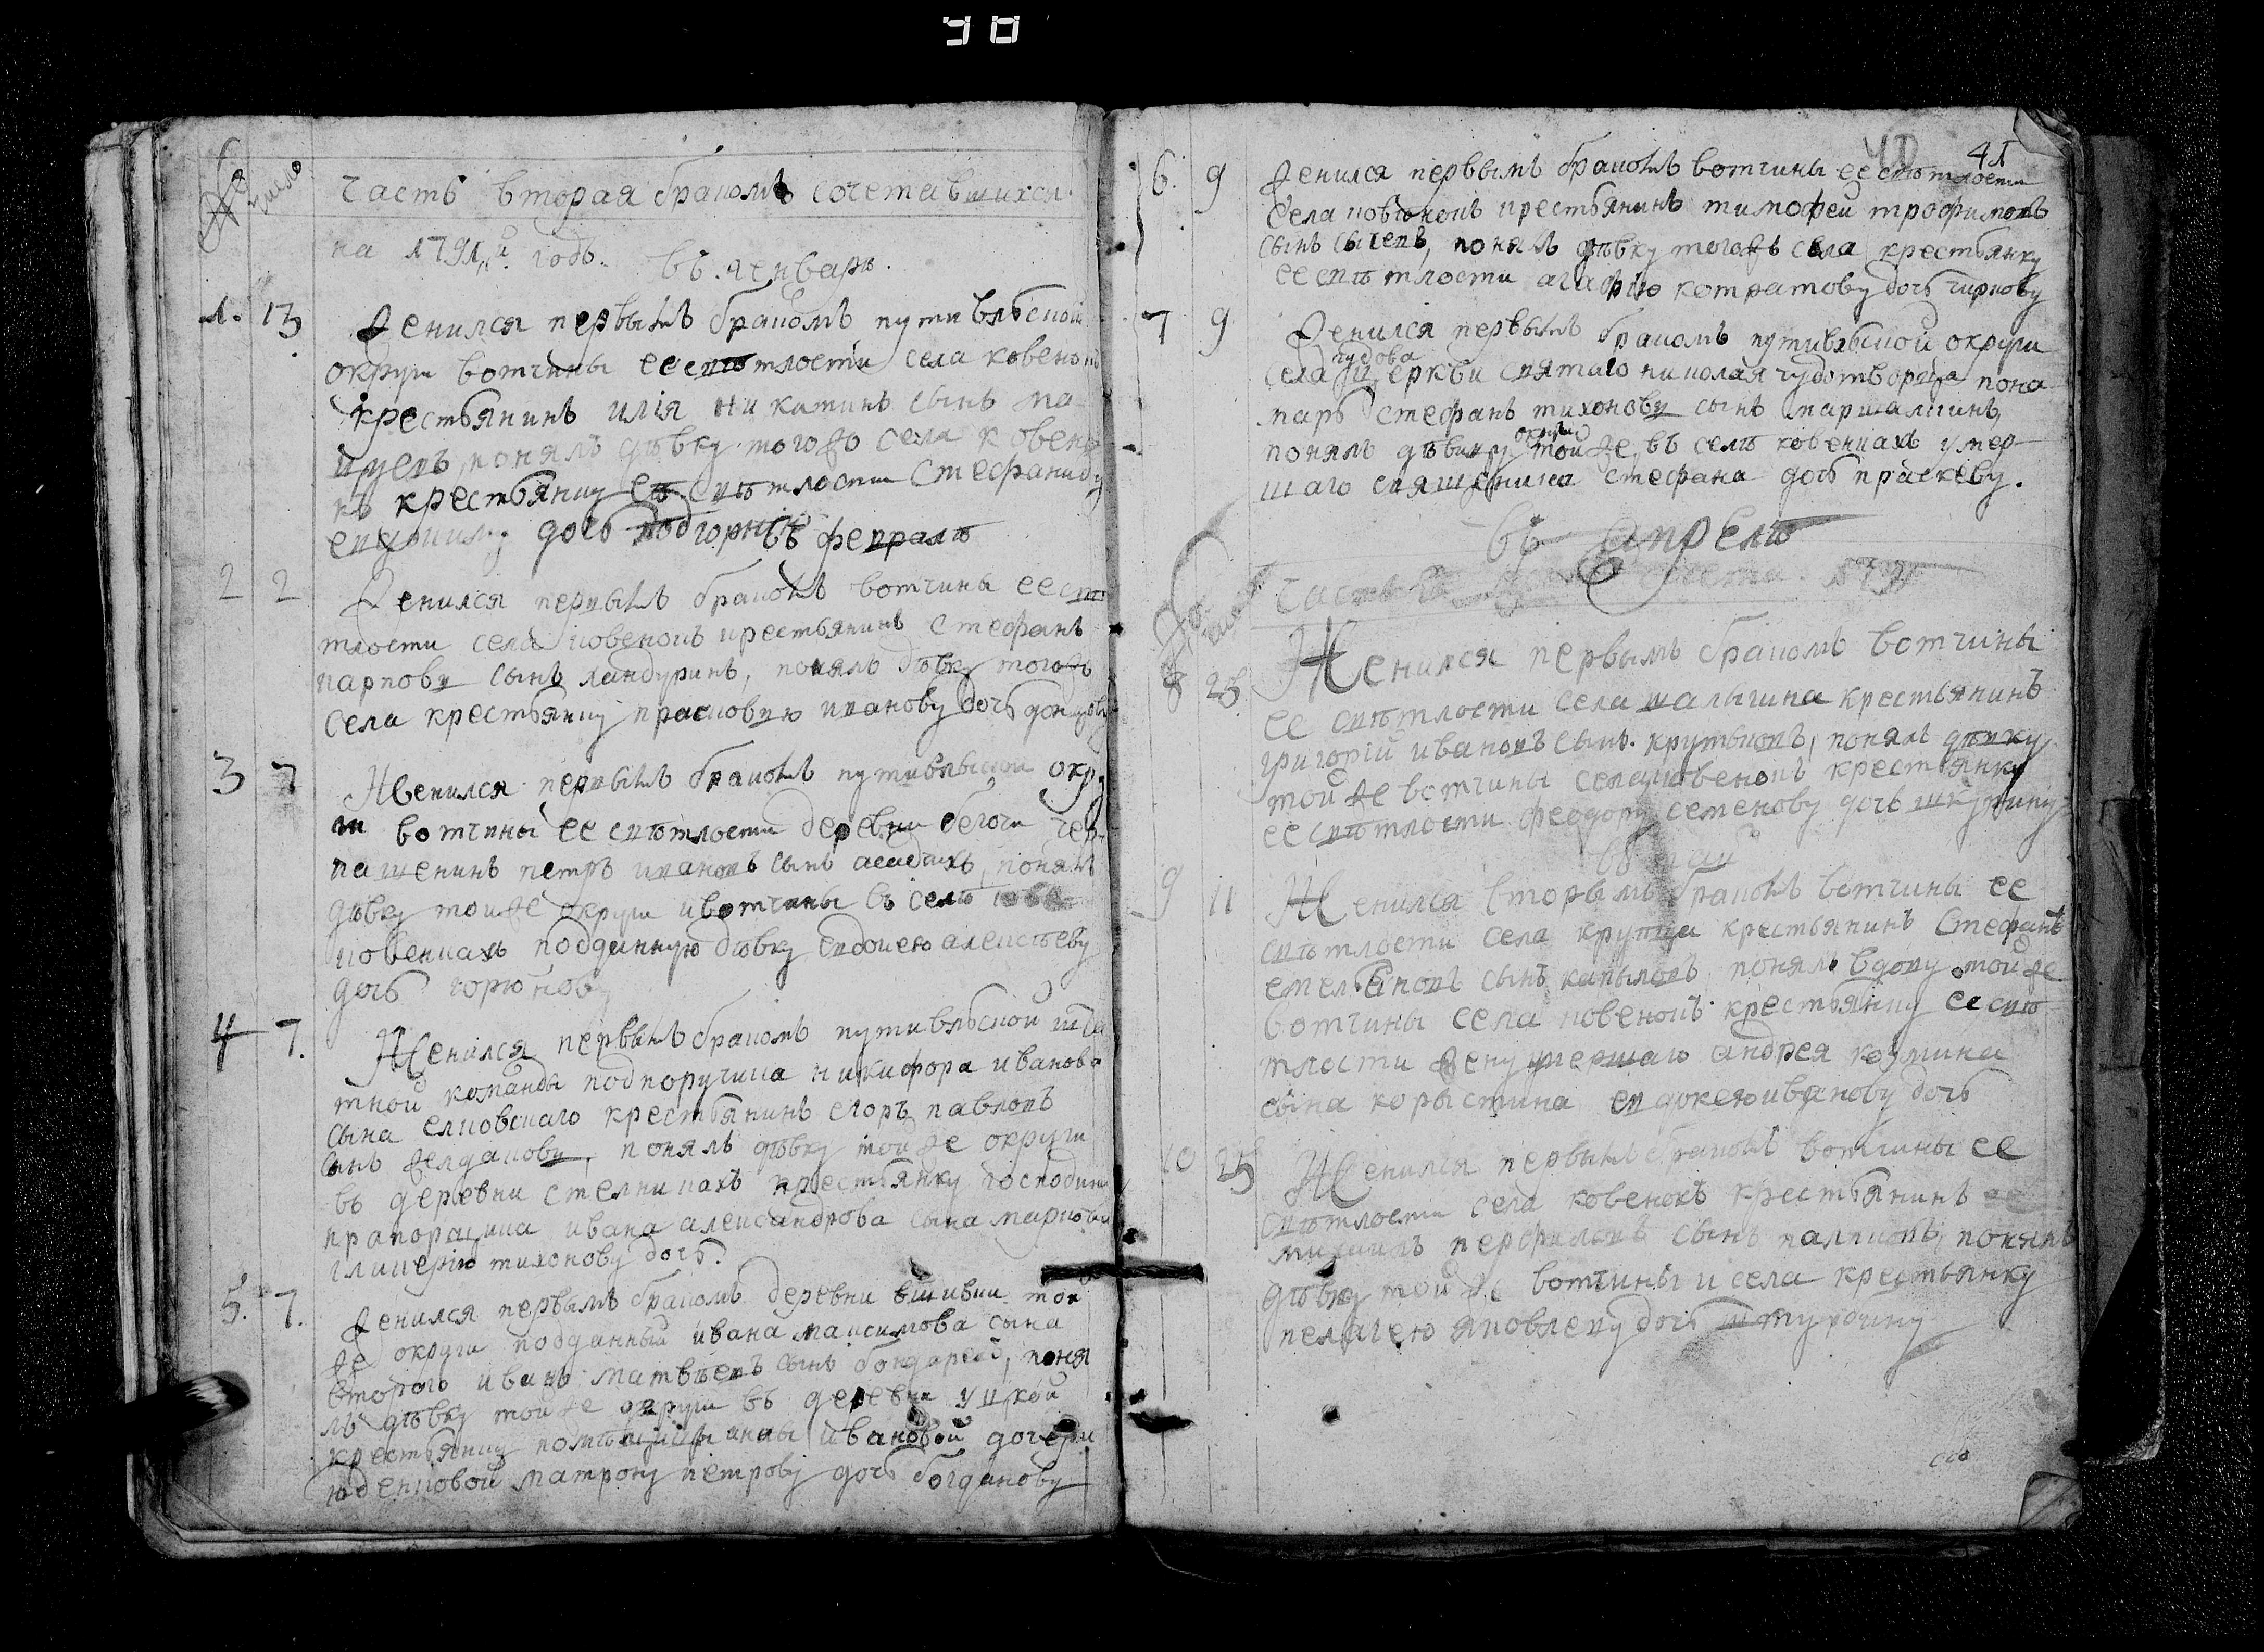 90
№ число
часть вторая бракомъ сочетавшихся
на 1791й годъ. въ генваръ.
1. 13 женился первымъ бракомъ путивльской
округи вотчины ее свѣтлости села ковенокъ
крестьянинъ илія никитинъ сынъ
понялъ дѣвку тогожъ села ковено
къ крестьянку еѣ свѣтлости стефаниду
дочь въ февралѣ
2 2 женился первымъ бракомъ вотчины ее свѣ
тлости села ковенокъ крестьянинъ стефанъ
карповъ сынъ ландуринъ, понялъ дѣвку тогожъ
села крестьянку прасковію иванову дочь
3 7 Женился первымъ бракомъ путивльской окру
ги вотчины ее свѣтлости деревни бегочи
петръ ивановъ сынъ понялъ
дѣвку тойже округи ивотчины въ селѣ
ковенкахъ подданную дѣвку евдокею алексѣеву
дочь горюнову
4 7. Женился первымъ бракомъ путивльской шта
тной команды подпоручика никифора иванова
сына елковскаго крестьянинъ егоръ павловъ
сынъ желдаковъ, понялъ дѣвку тойже округи
въ деревни крестьянку господина
прапорщика ивана александрова сына маркова
гликерію тихонову дочь.
5. 7. женился первымъ бракомъ деревни вшивки той
же округи подданный ивана максимова сына
втораго иванъ матвѣевъ сынъ бондарей, поня
лъ дѣвку тойже округи въ деревни
крестьянку помѣщицы анны ивановой дочери
юденковой матрону петрову дочь богданову
41
6. 9 женился первымъ бракомъ вотчины ее свѣтлости
села ковенокъ крестьянинъ тимофей трофимовъ
сынъ сычевъ, понялъ дѣвку тогожъ села крестьянку
ее свѣтлости агафію кондратову дочь чиркову
7 9 женился первымъ бракомъ путивльской округи
села чудова церкви святаго николая чудотворца пона
марь стефанъ тихоновъ сынъ маршалкинъ,
понялъ дѣвицу тойже округи въ селѣ ковенкахъ умер
шаго священника стефана дочь праскеву.
въ апрелѣ
8 25 Женился первымъ бракомъ вотчины
ее свѣтлости села шалыгина крестьянинъ
григорій ивановъ сынъ крутыковъ, понялъ дѣвку
тойже вотчины села ковенокъ крестьянку
ее свѣтлости феодору семенову дочь шкуркину
въ май
9 11 Женился вторымъ бракомъ вотчины ее
свѣтлости села крупца крестьянинъ стефанъ
емельяновъ сынъ капыловъ понялъ вдову тойже
вотчины села ковенокъ крестьянку ее свѣ
тлости жену умершаго андрея козмина
сына корыстина евдокеюиванову дочь
10 25 Женился первымъ бракомъ вотчины ее
свѣтлости села ковенокъ крестьянинъ
михаилъ перфильевъ сынъ понялъ
дѣвку тойже вотчины и села крестьянку
пелагею яковлеву дочь